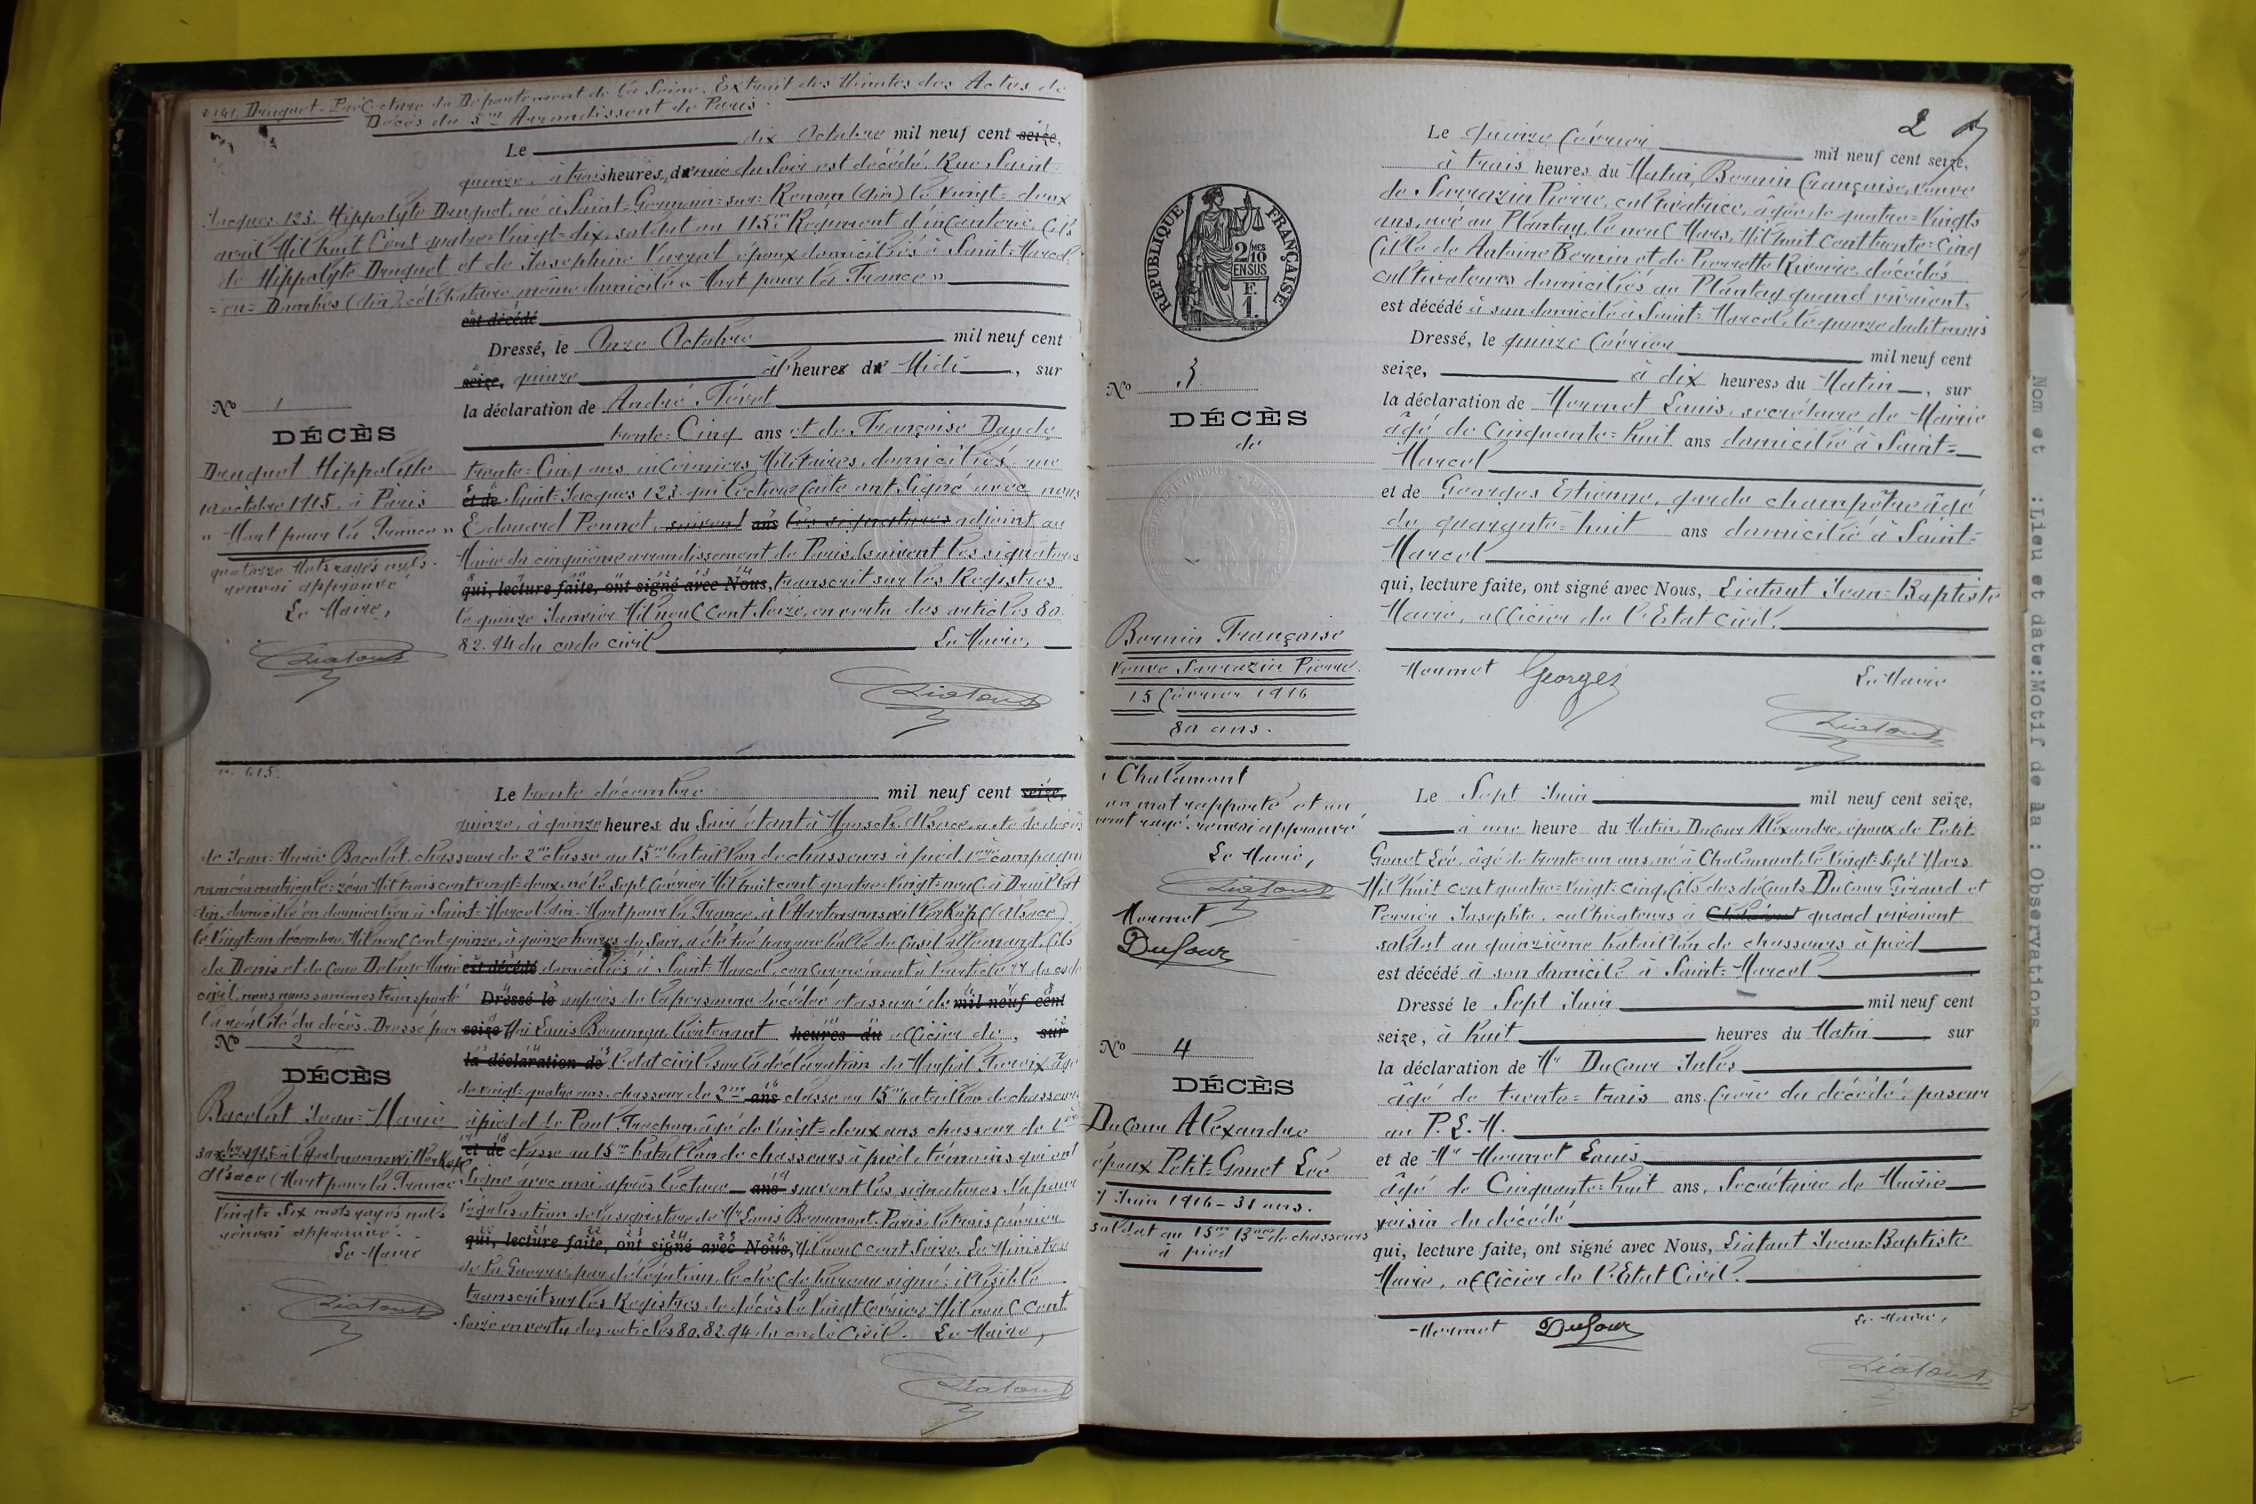 Druguet. Préfecture du Département de la Seine. Extrait des Minutes des Actes de
Décès du 5me Arrondissement de Paris.
Le dix Octobre mil neuf cent seize,
quinze, à trois heures, du soir est décédé, Rue Saint-
Jacques 123, Hippolyte Druguet, né à Saint-Germain-sur-Renon (Ain) le vingt-deux
avril Mil huit Cent quatre-vingt-dix, soldat au 115me Régiment d'infanterie, fils
de Hippolyte Druguet et de Josephine époux domiciliés à Saint-Marcel-
-en-Dombes (Ain), célibataire, même domicile « Mort pour la France »
est décédé
Dressé, le Onze Octobre mil neuf cent
seize, quinze à l'heure de Midi, sur
la déclaration de André Féret
trente-Cinq ans et de Françoise Daude
trente-Cinq ans infirmiers Militaires, domiciliés rue
et de Saint-Jacques 123 qui lecture faite ont signé avec nous
Edouard Ponnet, suivent ans les signatures adjoint au
Maire du cinquième arrondissement de Paris, suivent les signatures
qui, lecture faite, ont signé avec Nous, transcrit sur les Registres
le quinze Janvier Mil neuf cent seize, en vertu des articles 80
82.94 du code civil Le Maire,
Liatout
No 1
DÉCÈS
Druguet Hippolyte
10 octobre 1915, à Paris
« Mort pour la France »
quatorze Mots rayés nuls.
renvoi approuvé
Le Maire,
Liatout
n. 615.
Le trente décembre mil neuf cent seize,
quinze, à quinze heures du Soir étant à Moosch, Alsace, acte de décès
de Jean-Marie Bacolat, chasseur de 2me classe au 15me bataillon de chasseurs à pied, compagnie
numéro matricule: zéro Mil trois cent vingt-deux, né le Sept février Mil huit cent quatre-vingt-neuf à Druillat
Ain, domicilié en dernier lieu à Saint-Marcel Ain. Mort pour la France, à l'Hartmannswillerkopf (Alsace)
le vingt un décembre, Mil neuf cent quinze, à quinze heures du Soir, a été tué par une balle de fusil allemand, fils
de Denis et de Marie est décédé domiciliés à Saint-Marcel, conformément à l'article 77 du code
civil, nous nous sommes transporté Dressé le auprès de la personne décédée et assuré de mil neuf cent
la réalité du décès. Dressé par seize Moi Louis lieutenant heures du officier de, sur
la déclaration de l'état civil, sur la déclaration de âgé
de vingt-quatre ans, chasseur de 2me ans classe au 15me bataillon de chasseurs
à pied et de Paul âgé de vingt-deux ans chasseur de
et de classe au 15me bataillon de chasseurs à pied, témoins qui ont
signé avec moi après lecture ans suivent les signatures. Vu pour
légalisation de la signature de Mr Louis Paris, le trois février
qui, lecture faite, ont signé avec Nous, Mil neuf cent Seize. Le Ministre
de la Guerre, par délégation, le chef de bureau signé: illisible
transcrit sur les Registres de décès le vingt février Mil neuf cent
Seize en vertu des articles 80.82.94 du code Civil. Le Maire,
Liatout
No 2
DÉCÈS
Bacolat Jean-Marie
1915 à l'Hartmannswillerkopf
Alsace (Mort pour la France
vingt-Six mots rayés nuls
renvoi approuvé.
Le Maire
Liatout
2
RÉPUBLIQUE FRANÇAISE
2/10
MES
EN SUS
F.
1.
Le quinze février mil neuf cent seize,
à trois heures du Matin, Bernin Françoise, veuve
de Sarrazin Pierre, cultivatrice, âgée de quatre-vingts
ans, née au Plantay, le neuf Mars, Mil huit cent trente-cinq
fille de Antoine Bernin et de Pierrette Rivoire, décédés
cultivateurs domiciliés au Plantay quand vivaient,
est décédé à son domicile à Saint-Marcel, le quinze dudit mois
Dressé, le quinze février mil neuf cent
seize, à dix heures du Matin, sur
la déclaration de Mermet Louis, secrétaire de Mairie
âgé de Cinquante-huit ans domicilié à Saint-
Marcel
et de Georges Etienne, garde champêtre âgé
de quarante-huit ans domicilié à Saint-
Marcel
qui, lecture faite, ont signé avec Nous, Liatout Jean-Baptiste
Maire, officier de l'Etat civil.
Mermet Georges Le Maire
Liatout
No 3
DÉCÈS
de
Bernin Françoise
Veuve Sarrazin Pierre.
15 février 1916
80 ans.
Chalamont
un mot rapporté et un
mot rayé, renvoi approuvé
Le Maire,
Liatout
Mermet
Dufour
Le Sept Juin mil neuf cent seize,
à une heure du Matin, Dufour Alexandre, époux de Petit-
Gonet Léé, âgé de trente-un ans, né à Chalamont, le vingt-Sept Mars
Mil huit cent quatre-vingt-cinq, fils des défunts Dufour Girard et
Perrier Josephte, cultivateurs à quand vivaient
soldat au quinzième bataillon de chasseurs à pied
est décédé à son domicile à Saint-Marcel
Dressé le Sept Juin mil neuf cent
seize, à huit heures du Matin sur
la déclaration de Mr Dufour Jules
âgé de trente-trois ans frère du décédé, poseur
au P.L.M.
et de Mr Mermet Louis
âgé de Cinquante-huit ans, Secrétaire de Mairie
voisin du décédé
qui, lecture faite, ont signé avec Nous, Liatout Jean-Baptiste
Maire, officier de l'Etat Civil.
Mermet Dufour Le Maire,
Liatout
No 4
DÉCÈS
Dufour Alexandre
époux Petit-Gonet Léé
7 Juin 1916 - 31 ans.
soldat au 15me de chasseurs
à pied
Nom et :Lieu et date:Motif de la : Observations